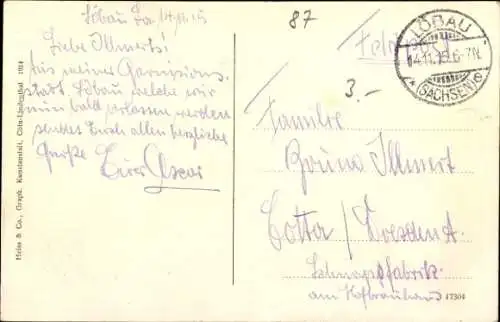 Löbau Sa 14.11.15
Liebe Illmerts!
Aus meiner Garnisons
stadt Löbau welche wir
nun bald verlassen werden
sendet Euch allen herzliche
Grüße Euer Oscar
87
Feldpost
3.-
LÖBAU
14.11.15.6-7N.
(SACHSEN)
Familie
Bruno Illmert
Cotta / Dresden A.
Schnapsfabrik
am Hofbrauhaus
Heiss & Co., Graph. Kunstanstalt, Cöln-Lindenthal 1914
47304